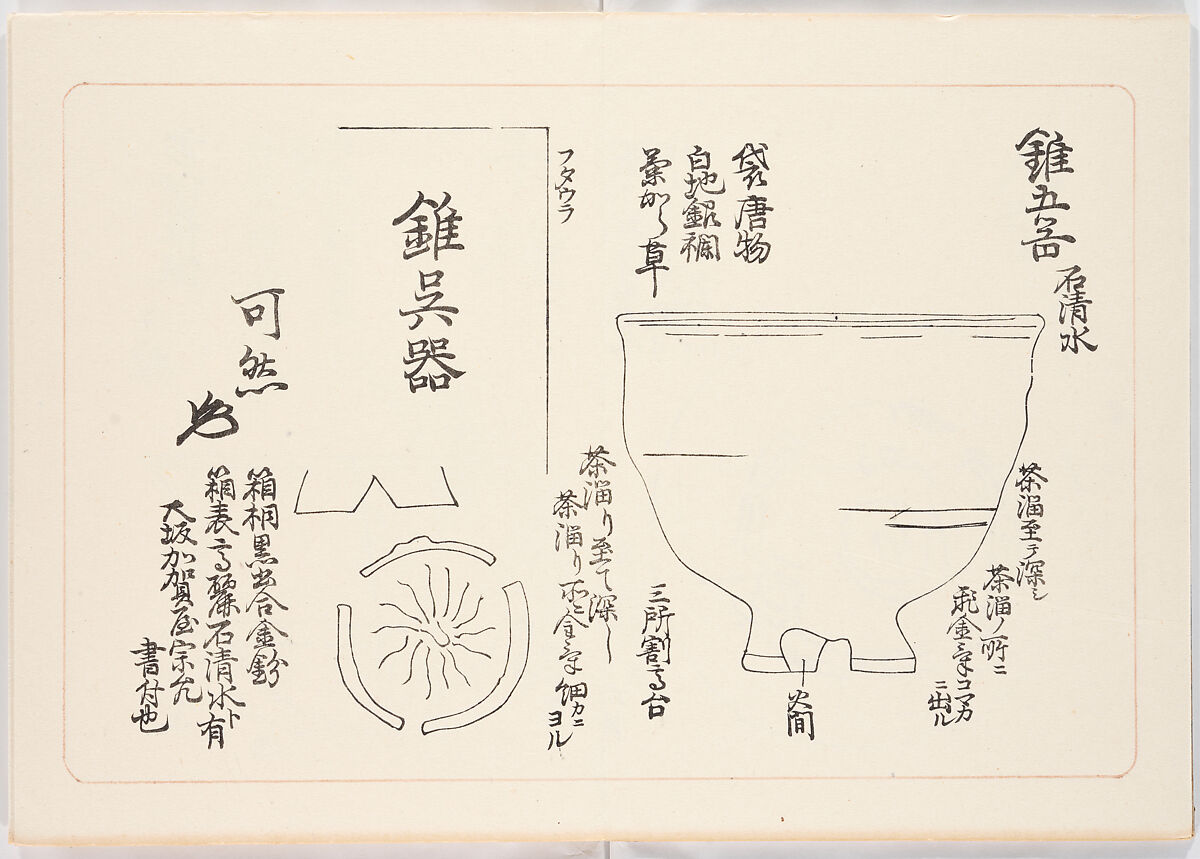 錐五器
石清水
袋唐物
白地銀襴
菊から草
茶溜至テ深シ
茶溜ノ所ニ
飛金氣コマカ
ニ出ル
火間
三所割高台
茶溜り至て深し
茶溜り所ニ金氣細カニ
ヨル
フタウラ
錐呉器
可然
箱桐黒出合金粉
箱表高麗石清水ト有
大坂加賀屋宗
書付也